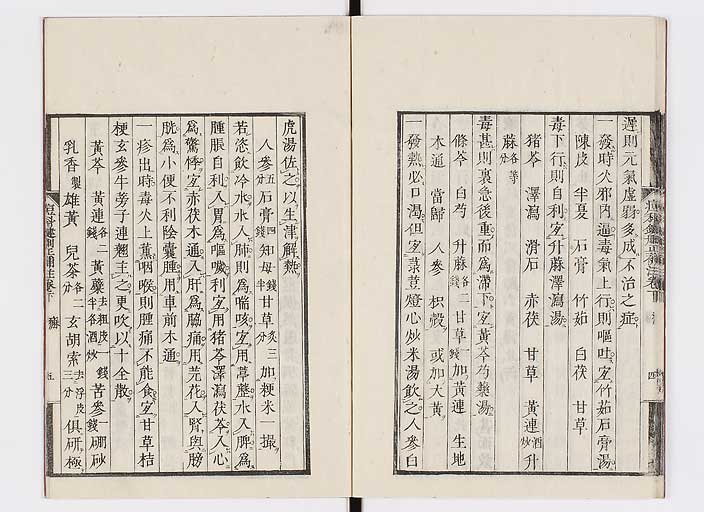 遲則元氣虛弱多成不治之症
一發時火邪內逼毒氣上行則嘔吐宜竹茹石膏湯
陳皮 半夏 石膏 竹茹 白茯 甘草
毒下行則自利宜升麻澤瀉湯
猪苓 澤瀉 滑石 赤茯 甘草 黃連酒炒 升
麻各等分
毒甚則裏急後重而爲滯下宜黃芩芍藥湯
條芩 白芍 升麻各二錢 甘草一錢 加黃連 生地
木通 當歸 人參 枳殼 或加大黃
一發熱必口渴但宜菉荳燈心炒米湯飲之人參白
虎湯佐之以生津解熱
人參五分 石膏四錢 知母一錢半 甘草炙三分 加粳米一撮
若恣飲冷水水入肺則爲喘咳宜用葶藶水入脾爲
腫脹自利入胃爲嘔噦利宜用猪苓澤瀉茯苓入心
爲驚悸宜赤茯木通入肝爲脇痛用芫花入腎與膀
胱爲小便不利陰囊腫用車前木通
一疹出時毒火上薰咽喉則腫痛不能食宜甘草桔
梗玄參牛旁子連翹主之更吹以十全散
黃芩 黃連各二錢 黃蘗去粗皮一錢半各酒炒 苦參一錢 硼砂
乳香製 雄黃 兒茶各二分 玄胡索去浮皮三分 俱研極
痘科鍵刪正補注卷下 疹 五
四